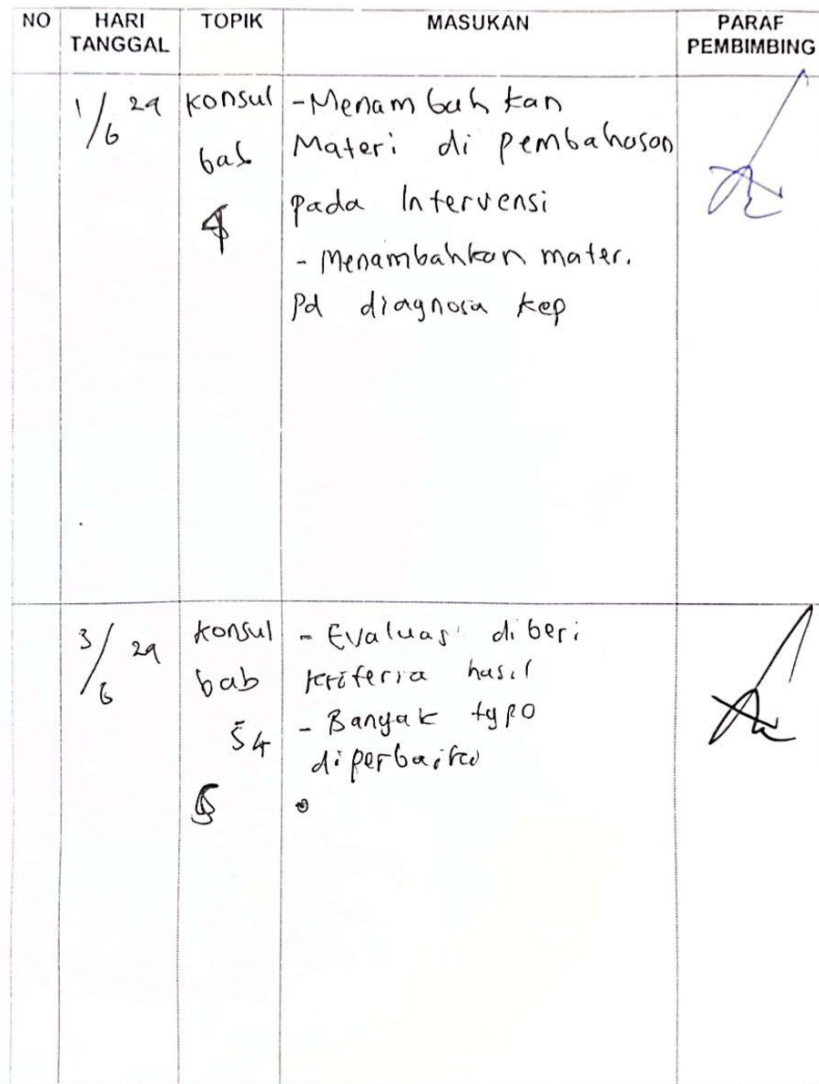 NO HARI TANGGAL TOPIK MASUKAN PARAF PEMBIMBING
1/6 24 konsul bab 4
- Menambahkan
Materi di pembahasan
pada Intervensi
- Menambahkan materi
Pd diagnosa kep
3/6 24 konsul bab 4
5
- Evaluasi diberi
kriteria hasil
- Banyak typo
diperbaiki